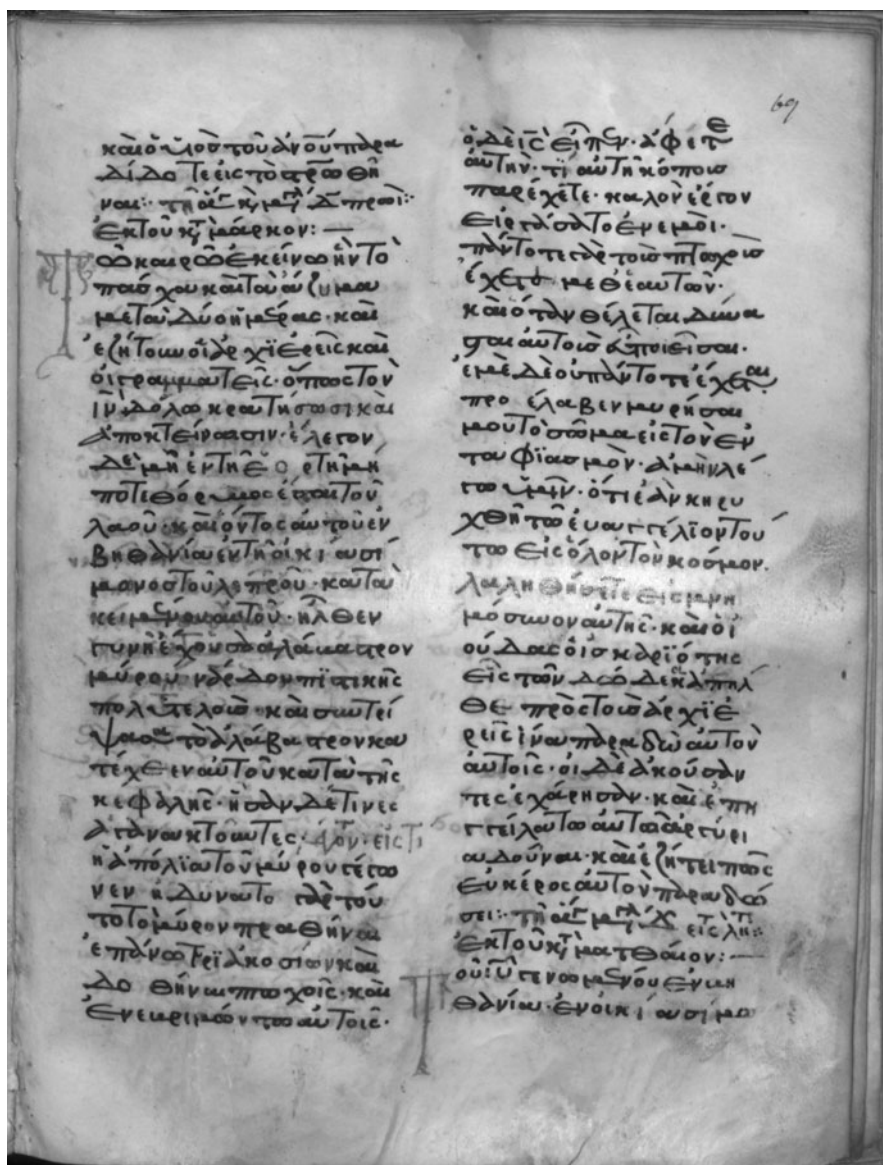 69
καὶ ὁ υἱὸσ τοῦ ἀνοῦ παρα
δίδοτε εἰς τὸ στρωθῆ
ναι·
ἐκ τοῦ κτ μάρκον:—
Τῶ καιρῶ ἐκείνω ἦν τὸ
πασχου καὶ τὰ ἄζυμα
μετὰ δύο ἡμέρας· καὶ
ἐζήτουν οἱ ἀρχϊερεῖς καὶ
οἱ γραμματεῖς· ὅπως τὸν
ιν δόλω κρατήσωσι καὶ
ἀποκτείνωσιν· ἔλεγον
δὲ μὴ ἐν τῆ ἑορτῆ μή
ποτε θόρυβος ἔσται τοῦ
λαοῦ· καὶ ὄντος αὐτοῦ ἐν
βηθανία ἐν τῆ οἰκία σί
μονοσ τοῦ λεπροῦ· κατα
κειμένου αὐτοῦ· ἦλθεν
γυνὴ ἔχουσα ἀλάβαστρον
μύρου νάρδου πϊστικῆς
πολυτελοῖσ· καὶ συντρί
ψασα τὸ ἀλάβαστρον κα
τέχεεν αὐτοῦ κατὰ τῆς
κεφαλῆς· ἦσαν δέ τινες
ἀγανακτοῦντες· εἰς τί
ἡ ἀπόλϊα τοῦ μύρου γέγω
νεν ἠδύνατο γὰρ τοῦ
το τὸ μύρον πραθῆναι
ἐπάνω τρϊακοσίων καὶ
δοθῆναι πτωχοῖς· καὶ
ἐνεβριμῶντο αὐτοῖς·
ὁ δὲ ις εἶπεν· ἄφετε
αὐτὴν· τί αὐτῆ κόποισ
παρέχετε· καλὸν ἔργον
εἰργάσατο ἐν ἐμοὶ·
πάντοτε γὰρ τοῖσ πτωχοῖσ
ἔχετε μεθ' ἑαυτῶν·
καὶ ὅταν θέλεται δύνα
σθαι αὐτοῖσ εὐποιεῖσαι·
ἐμὲ δὲ οὐ πάντοτε ἔχεται
προέλαβεν μυρῆσαι
μου τὸ σῶμα εἰς τὸν ἐν
ταφϊασμὸν· ἀμὴν λέ
γω ὑμῖν· ὅτι ἐὰν κηρυ
χθῆ τῶ εὐαγγέλϊον τοῦ
τω εἰς ὅλον τὸν κόσμον·
λαληθήσετε εἰς μνη
μόσυνον αὐτῆς· καὶ ὁ ἰ
ούδας ὁ ἰσκαρϊότης
εἷς τῶν δώδεκα ἀπῆλ
θε πρὸς τοῖσ ἀρχϊε
ρεῖς ἵνα παραδῶ αὐτὸν
αὐτοῖς· οἱ δὲ ἀκούσαν
τες ἐχάρησαν· καὶ ἐπη
γγείλατω αὐτῶ ἀργύρι
α δοῦναι· καὶ ἐζήτει πῶς
εὐκέρος αὐτὸν παραδώ
σει·
ἐκ τοῦ κτ ματθαίον:—
Τοῦ ιυ γενωμένου ἐν βη
θανία· ἐν οἰκία σίμω